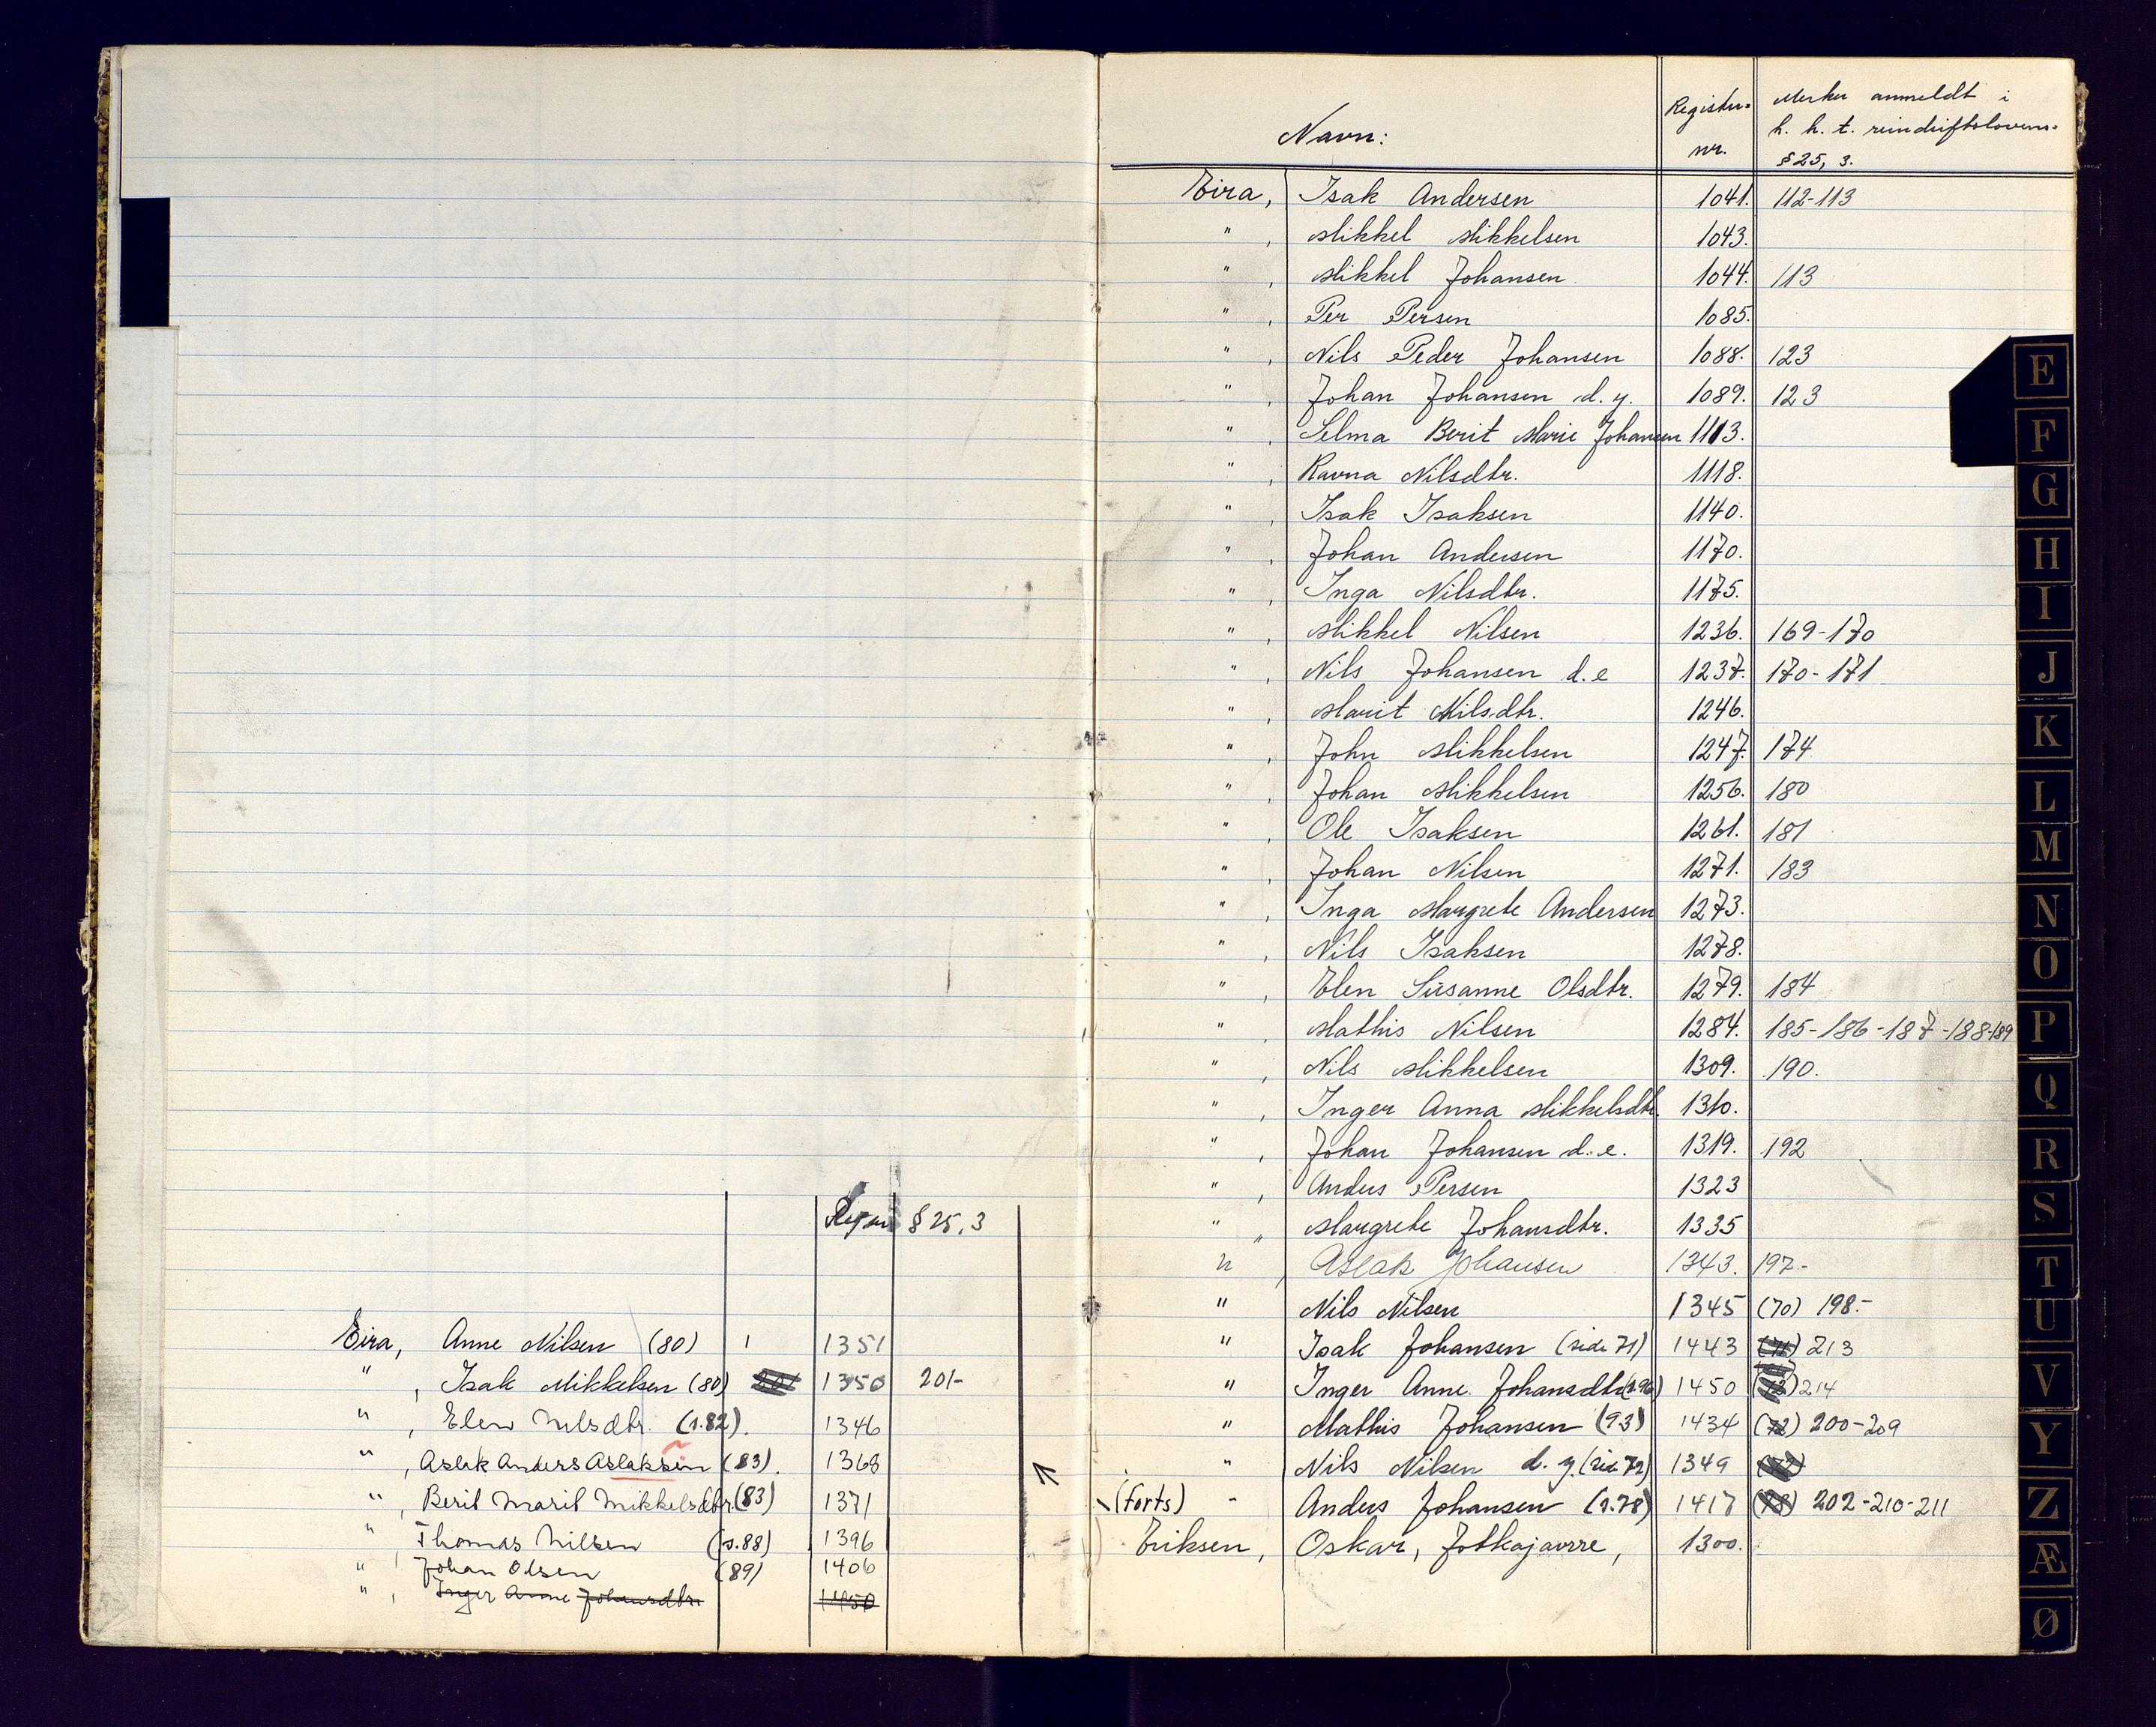 Reg nr § 25, 3
Eira, Anne Nilsen (80) 1 1351
" , Isak Mikkelsen (80) 201 1350 201-
" , Elen Nilsdtr. (s.82). 1346
" , Aslak Anders Aslaksen (83). 1368
" , Berit Marit Mikkelsdtr. (83) 1371
" , Thomas Nilsen (s.88) 1396
" , Johan Olsen (89) 1406
" , Inger Anne Johansdtr. 1450
Navn: Register- nr. Merker anmeldt i
h. h. t. reindriftslovens-
§ 25, 3.
Eira, Isak Andersen 1041. 112-113
" , Mikkel Mikkelsen 1043.
" , Mikkel Johansen 1044. 113
" , Per Persen 1085.
" , Nils Peder Johansen 1088. 123
" , Johan Johansen d. y. 1089. 123
" , Selma Berit Marie Johansen 1113.
" , Ravna Nilsdtr. 1118.
" , Isak Isaksen 1140.
" , Johan Andersen 1170.
" , Inga Nilsdtr. 1175.
" , Mikkel Nilsen 1236. 169-170
" , Nils Johansen d. e 1237. 170-171
" , Marit Nilsdtr. 1246.
" , John Mikkelsen 1247. 174
" , Johan Mikkelsen 1256. 180
" , Ole Isaksen 1261. 181
" , Johan Nilsen 1271. 183
" , Inga Margrete Andersen 1273.
" , Nils Isaksen 1278.
" , Elen Susanne Olsdtr. 1279. 184
" , Mathis Nilsen 1284. 185-186-187-188-189
" , Nils Mikkelsen 1309. 190.
" , Inger Anna Mikkelsdtr. 1310.
" , Johan Johansen d. e. 1319. 192
" , Anders Persen 1323
" , Margrete Johansdtr. 1335
" , Aslak Johansen 1343. 197-
" Nils Nilsen 1345 (70) 198.-
" Isak Johansen (side 71) 1443 (71) 213
" Inger Anne Johansdtr (s.96) 1450 214
" Mathis Johansen (93) 1434 (72) 200-209
" Nils Nilsen d. y. (side 72) 1349
(forts) " Anders Johansen (s.78) 1417 (78) 202-210-211
Eriksen, Oskar, Jotkajavrre, 1300.
E
F
G
H
I
J
K
L
M
N
O
P
Q
R
S
T
U
V
Y
Z
Æ
Ø